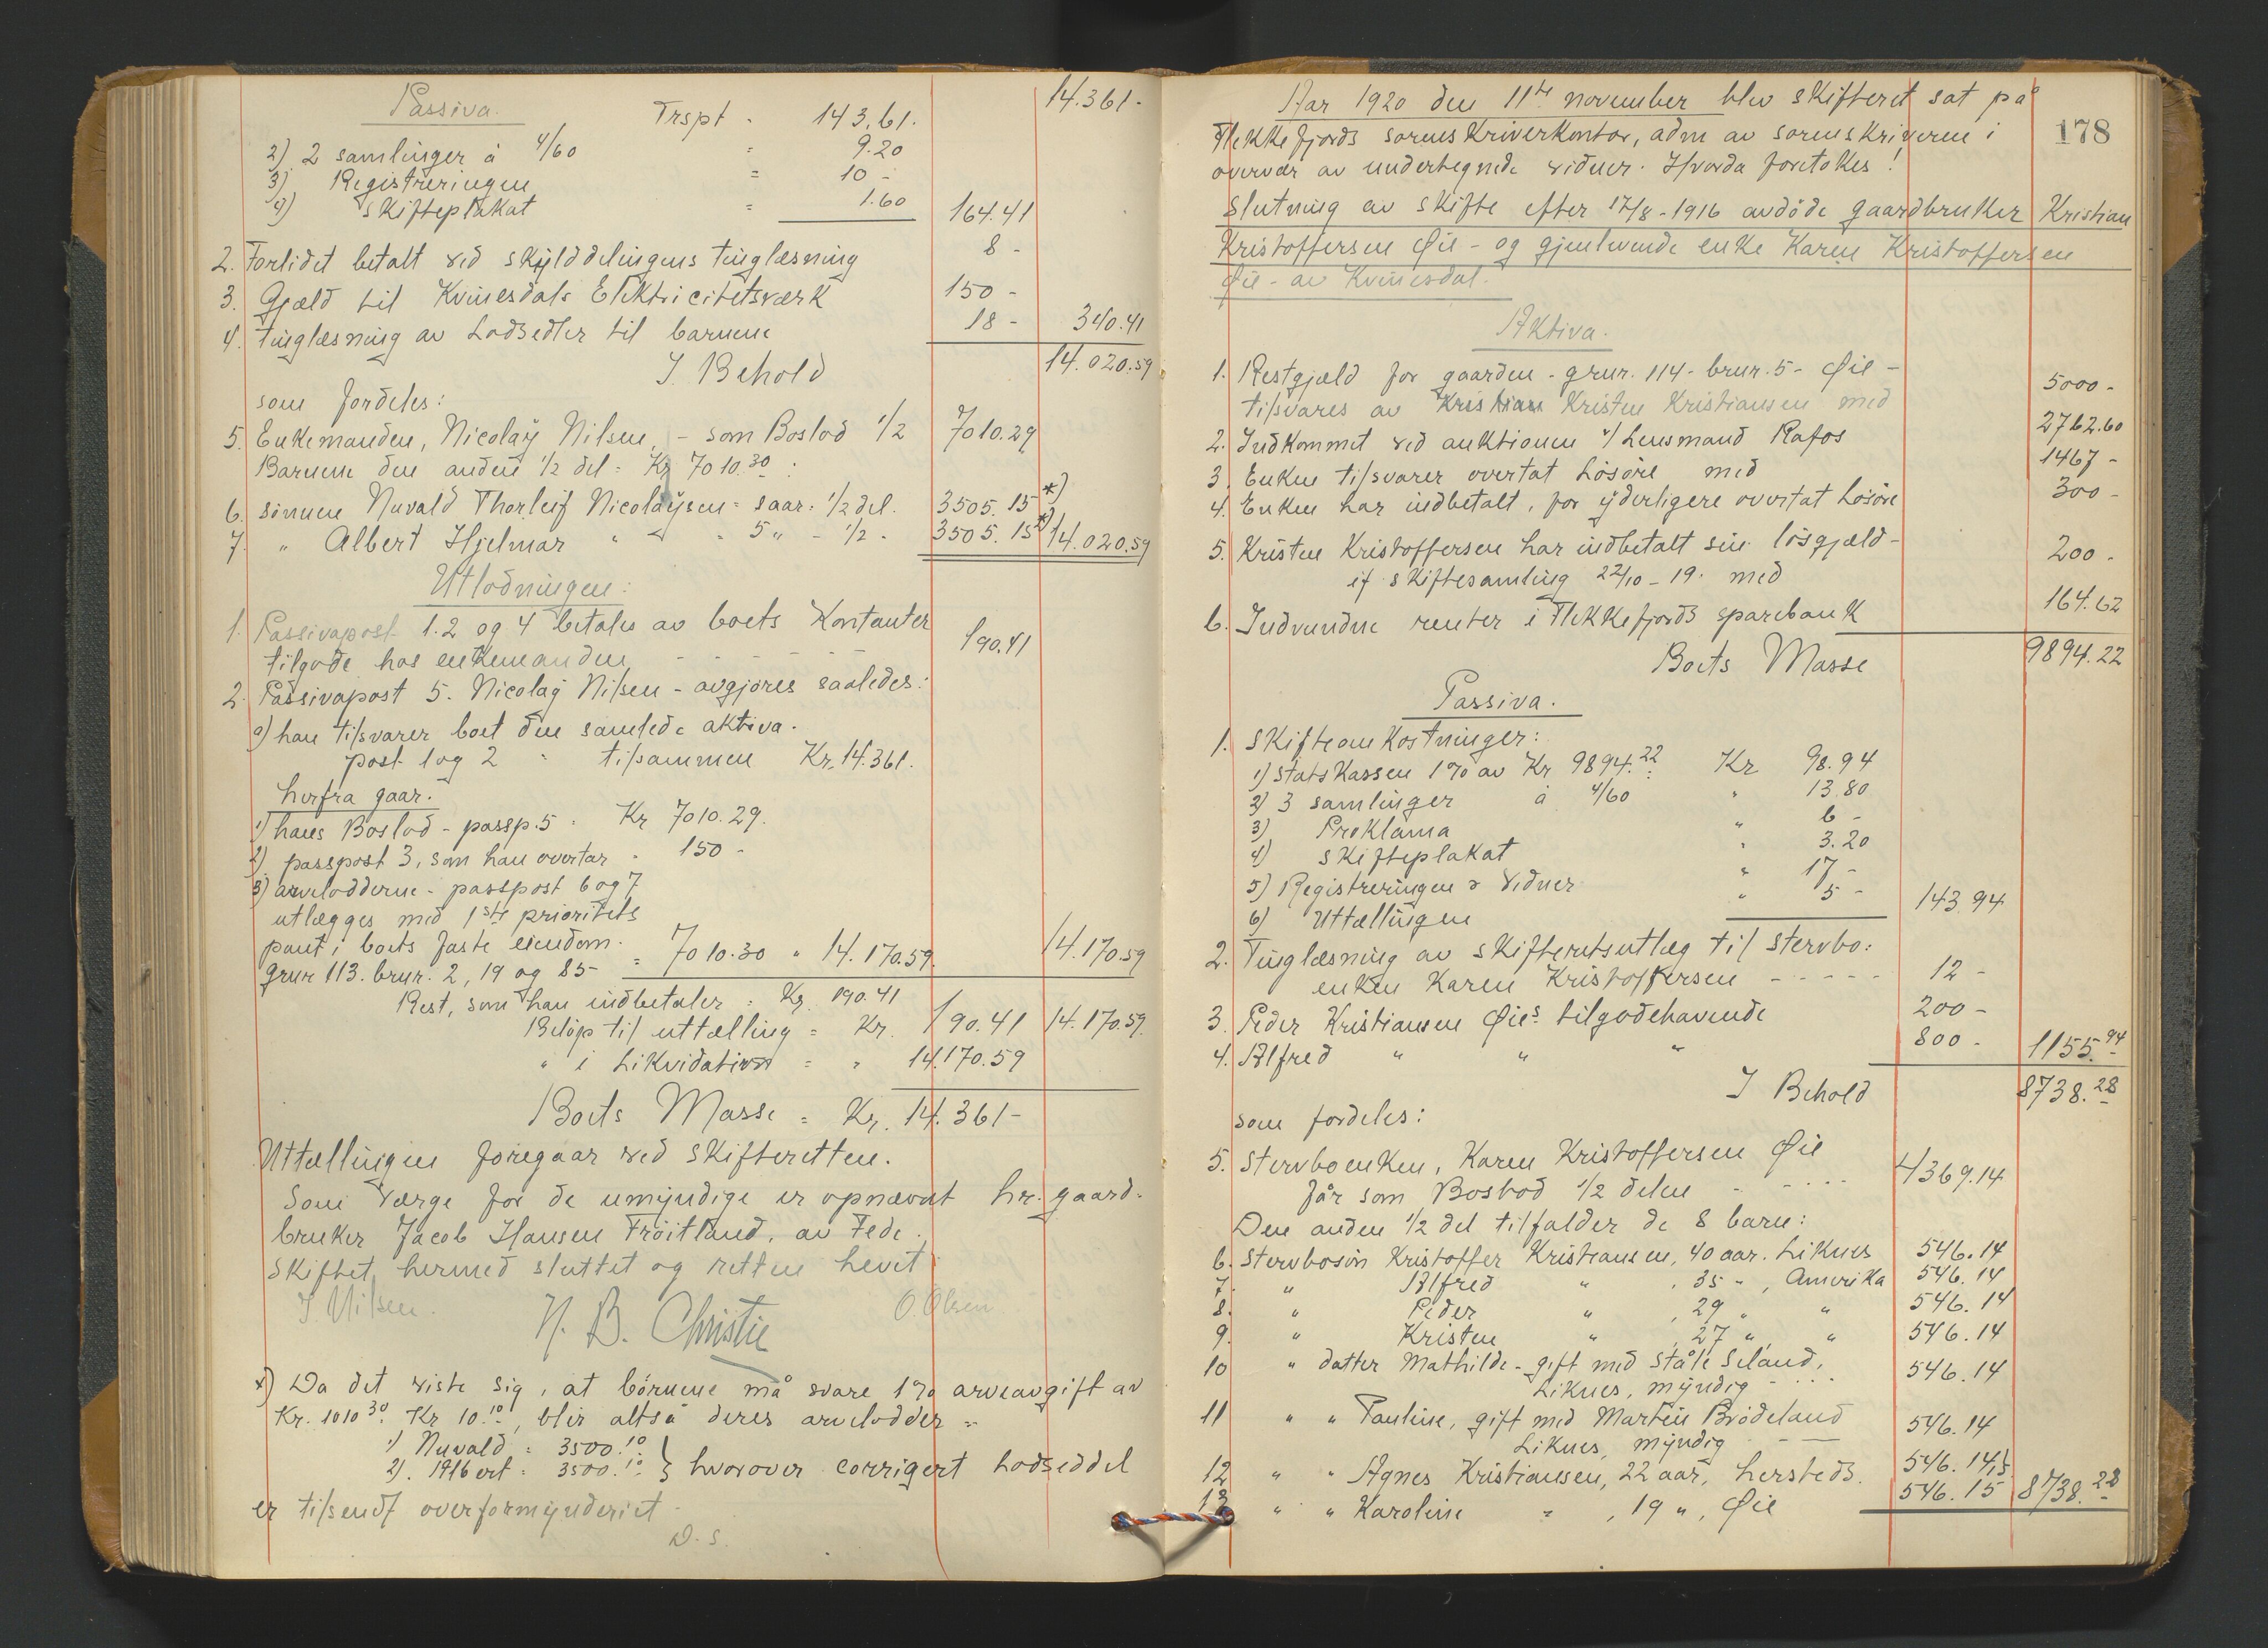 Passiva. Trspt - 143.61. 14.361-
2) 2 samlinger à 4/60 = 9.20
3) Registreringen = 10 -
4) Skifteplakat = 1.60 164.41
2. Forlidet betalt ved skylddelingens tinglæsning 8 -
3. Gjæld til Kvinesdals Elektricitetsværk 150 -
4. tinglæsning av Lodsedler til barnene 18 - 340.41
I Behold 14.020.59
som fordeles:
5. Enkemanden, Nicolaÿ Nilsen, - som Boslod 1/2 7010.29
Barnene den anden 1/2 del = Kr 7010.30 :
6. sønnen Nuvald Thorleif Nicolaÿsen = saar. 1/2 del. 3505.15 *)
7. " Albert Hjelmar " - " 5 " - 1/2 - 3505.15 *) 14.020.59
Utlodningen:
1. Passivapost 1.2 og 4 betales av boets Kontanter
tilgode hos enkemanden - - - - - - 190.41
2. Passivapost 5. Nicolaÿ Nilsen - avgjøres saaledes:
a) han tilsvarer boet den samlede aktiva.
post 1 og 2 - tilsammen Kr. 14.361.
herfra gaar:
1) hans Boslod - passp. 5 - Kr 7010.29.
2) passpost 3, som han overtar - 150 -
3) arvelodderne - passpost 6 og 7
utlægges med 1ste prioritets
pant i boets faste eiendom.
grnr 113. brnr. 2, 19 og 85 - = 7010.30 " 14.170.59. 14.170.59
Rest, som han indbetaler = Kr. 190.41
Beløp til uttælling = Kr. 190.41 14.170.59
" i Likvidation = " 14.170.59
Boets Masse = Kr. 14.361-
Uttællingen foregaar ved skifteretten.
Som Værge for de umyndige er opnævnt hr. gaard-
bruker Jacob Hansen Frøitland, av Fede.
Skiftet hermed sluttet og retten hevet
J. Nilsen. H. B. Christie O. Olsen
*) Da det viste sig, at børnene må svare 1% arveavgift av
Kr. 1010 30. Kr 10.10, blir altså deres arvelodder =
1) Nuvald = 3500.10
2). Albert = 3500.10 } hvorover corrigert Lodseddel
er tilsendt overformynderiet -
D. S.
178
Aar 1920 den 11te november blev skifteret sat på
Flekkefjords sorenskriverkontor, adm av sorenskriveren i
overvær av undertegnede vidner. Hvorda foretokes!
Slutning av skifte efter 17/8-1916 avdøde gaardbruker Kristian
Kristoffersen Øie - og gjenlevende enke Karen Kristoffersen
Øie - av Kvinesdal.
Aktiva.
1. Restgjæld for gaarden - grnr. 114 - brnr. 5 - Øie -
tilsvares av Kristian Kristen Kristiansen med 5000 -
2. Indkommet ved auktionen v/ Lensmand Rafos 2762.60
3. Enken tilsvarer overtat Løsøre med 1467 -
4. Enken har indbetalt, for ÿderligere overtat Løsøre 300 -
5. Kristen Kristoffersen har indbetalt sin løsgjæld -
if. skiftesamling 22/10-19. med 200 -
6. Indvundne renter i Flekkefjords sparebank 164.62
Boets Masse 9894.22
Passiva.
1. Skifteomkostninger:
1) Statskassen 1% av Kr 9894.22 : Kr 98.94
2) 3 samlinger à 4/60 " 13.80
3) Proklama " 6 -
4) Skifteplakat " 3.20
5) Registreringen & Vidner " 17 -
6) Uttællingen " 5 - 143.94
2. Tinglæsning av skifteretsutlæg til stervbo-
enken Karen Kristoffersen - - - - - 12 -
3. Peder Kristiansen Øies tilgodehavende 200 -
4. Alfred " " " 800 - 1155.94
I Behold 8738.28
som fordeles:
5. Stervboenken, Karen Kristoffersen Øie
får som Boslod 1/2 delen - - - - - 4369.14
Den anden 1/2 del tilfalder de 8 barn:
6. Stervbosøn Kristoffer Kristiansen, 40 aar. Liknes 546.14
7. " Alfred " , 35 - , Amerika 546.14
8. " Peder " , 29 " " 546.14
9. " Kristen " , 27 " , " 546.14
10 " datter Mathilde - gift med Ståle Seland,
Liknes, mÿndig - - - - 546.14
11 " " Pauline, gift med Martin Brødeland
Liknes, mÿndig 546.14
12 " " Agnes Kristiansen, 22 aar, hersteds. 546.145
13 " " Karoline " , 19 " , Øie 546.15 8738.28